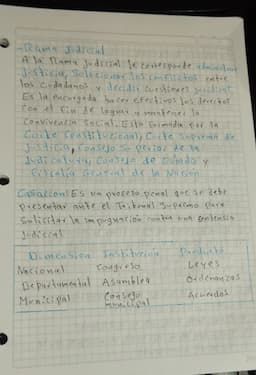 -Rama Judicial
A la Rama Judicial le corresponde administrar
Justicia, Solucionar los conflictos entre
los ciudadanos y decidir cuestiones jurídicas
Es la encargada hacer efectivos los derechos
con el fin de lograr y mantener la
Convivencia Social. Esta formada por la
Corte Constitucional, Corte Suprema de
Justicia, Consejo Superior de la
Judicatura, Consejo de Estado y
Fiscalía General de la Nación
Casación: Es un proceso penal que se debe
presentar ante el Tribunal Supremo para
Solicitar la impugnación contra una sentencia
Judicial
Dimension Institucion Producto
Nacional Congreso Leyes
Departamental Asamblea Ordenanzas
Municipal Consejo municipal Acuerdos